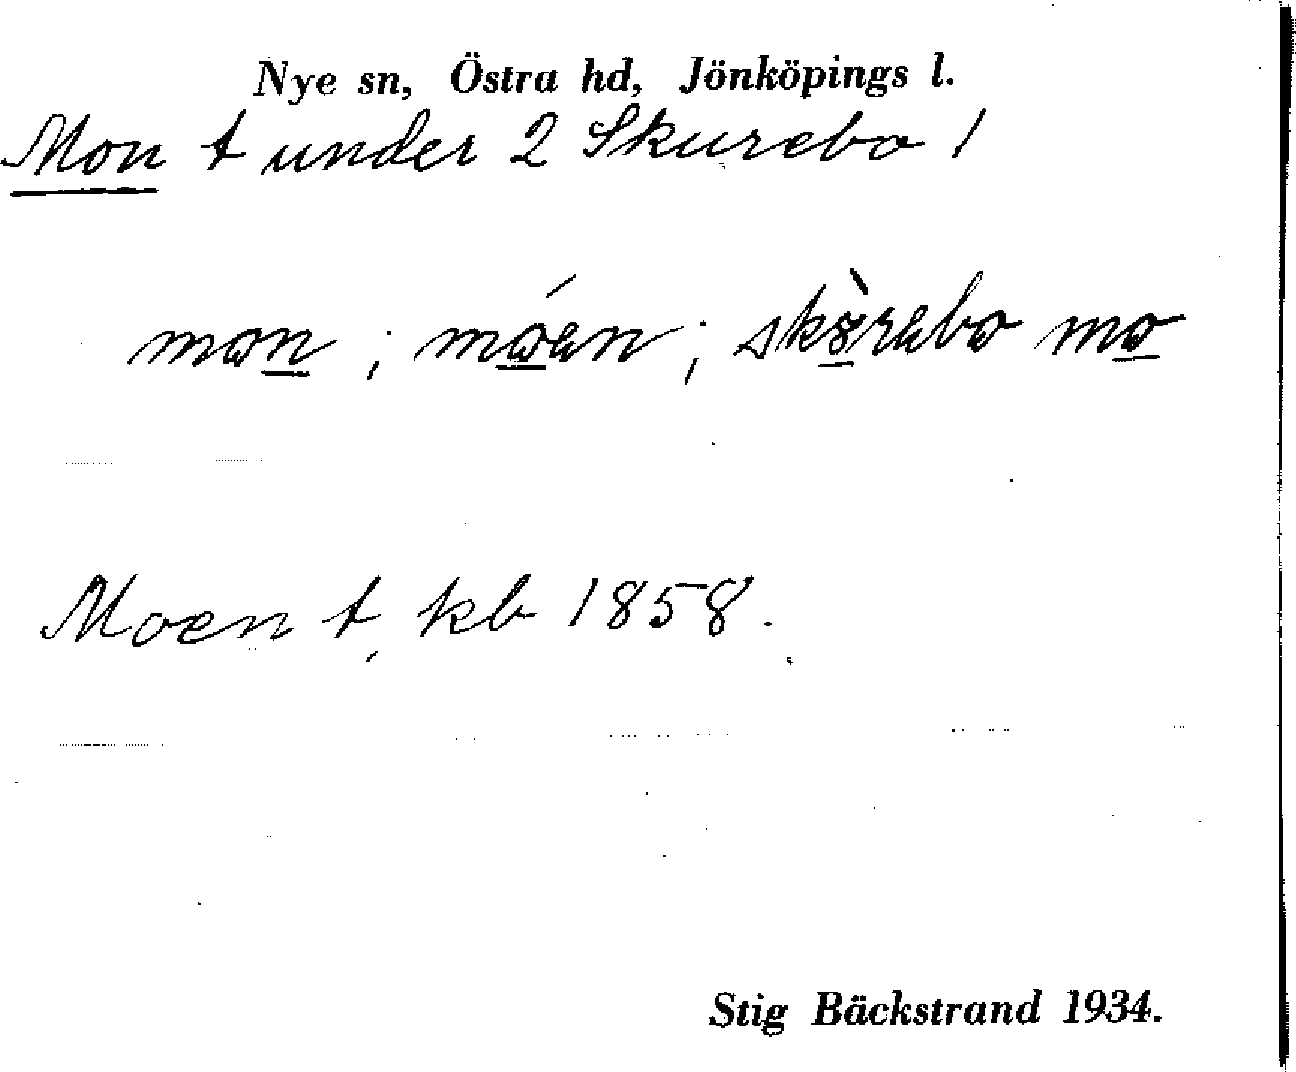 Nye sn, Östra hd, Jönköpings l.
Mon t under 2 Skurebo 1
mon ; móen ; skòrebo mo
Moen t, kb 1858.
Stig Bäckstrand 1934.